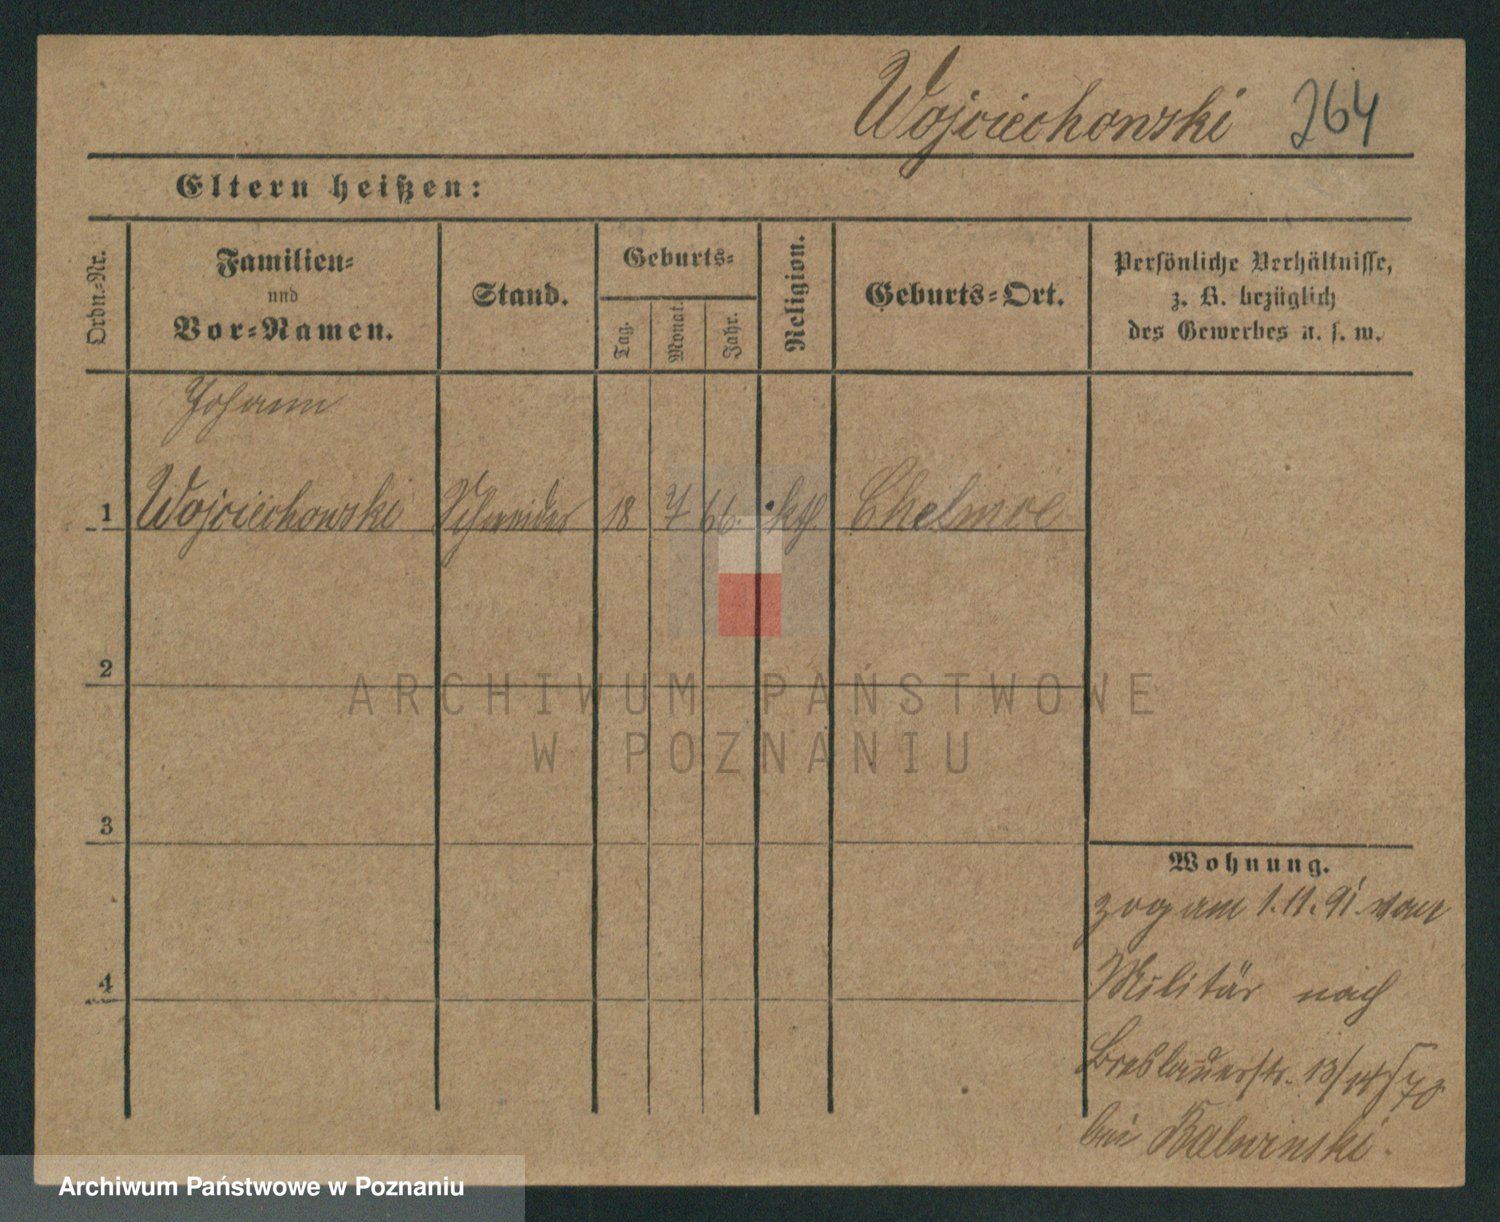 Wojciechowski 264
Eltern heißen:
Ordn.-Nr.
Familien-
und
Vor-Namen.
Stand.
Geburts-
Tag.
Monat.
Jahr.
Religion.
Geburts-Ort.
Persönliche Verhältnisse,
z. B. bezüglich
des Gewerbes u. s. w.
Johann
1 Wojciechowski Schneider 18 7 66. kth. Chelmce
2
3
4
Wohnung.
zog am 1.11.91 vom
Militär nach
Breslauerstr. 13/14
bei Kalwinski.
ARCHIWUM PAŃSTWOWE
W POZNANIU
Archiwum Państwowe w Poznaniu